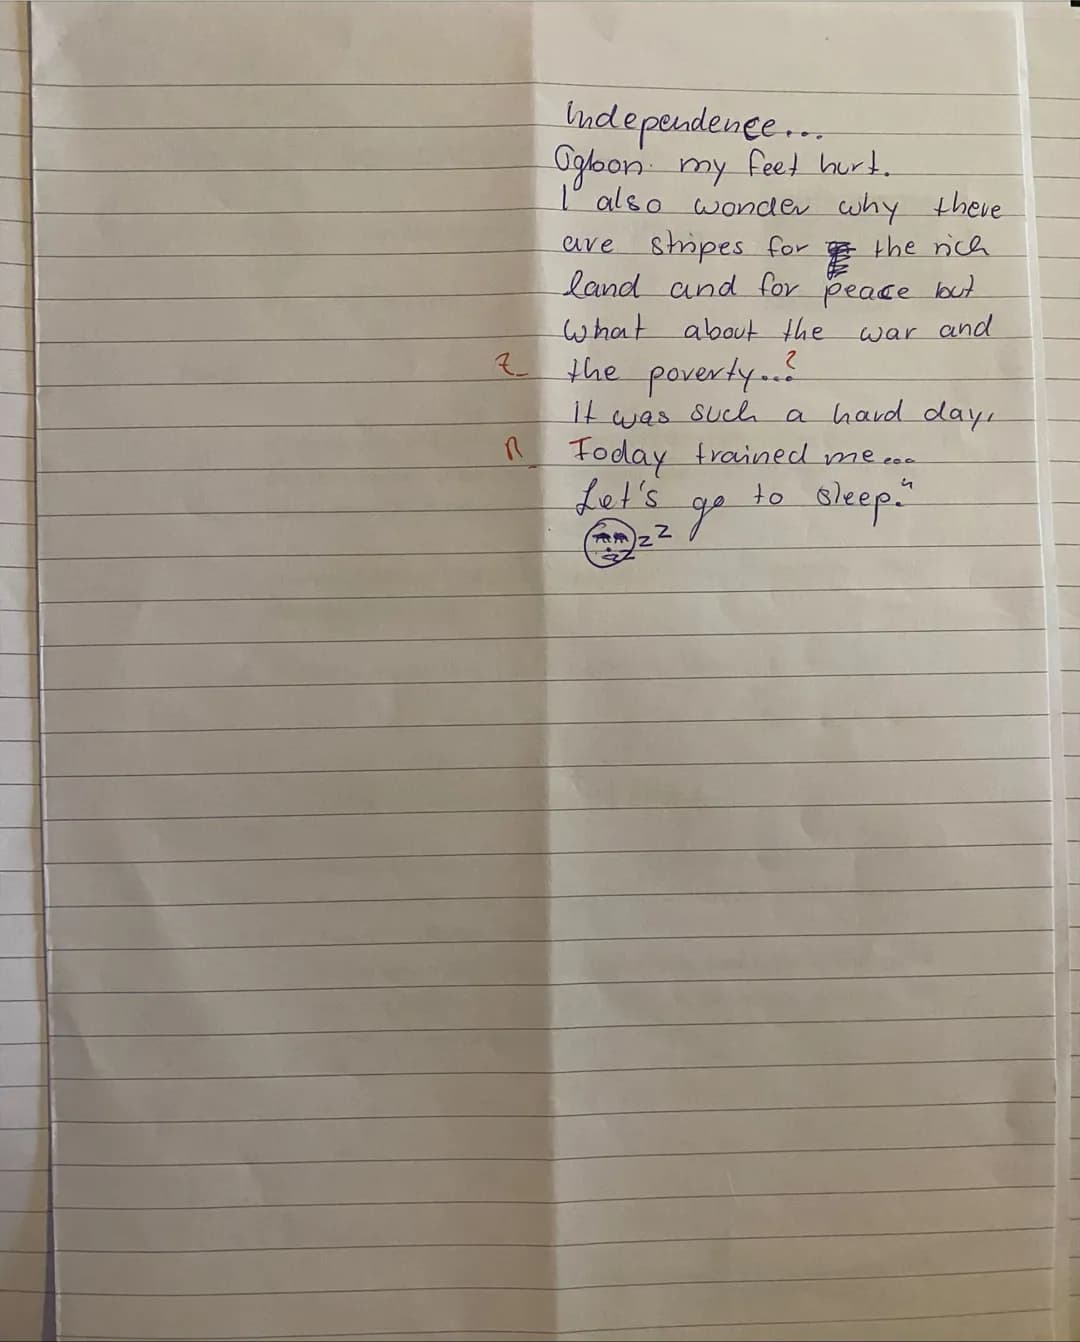 Independence...
Ogbon my feet hurt.
I also wonder why there
are stripes for the rich
land and for peace but
what about the war and
Z the poverty...?
It was such a hard day,
R Today trained me...
Let's go to sleep."
zz